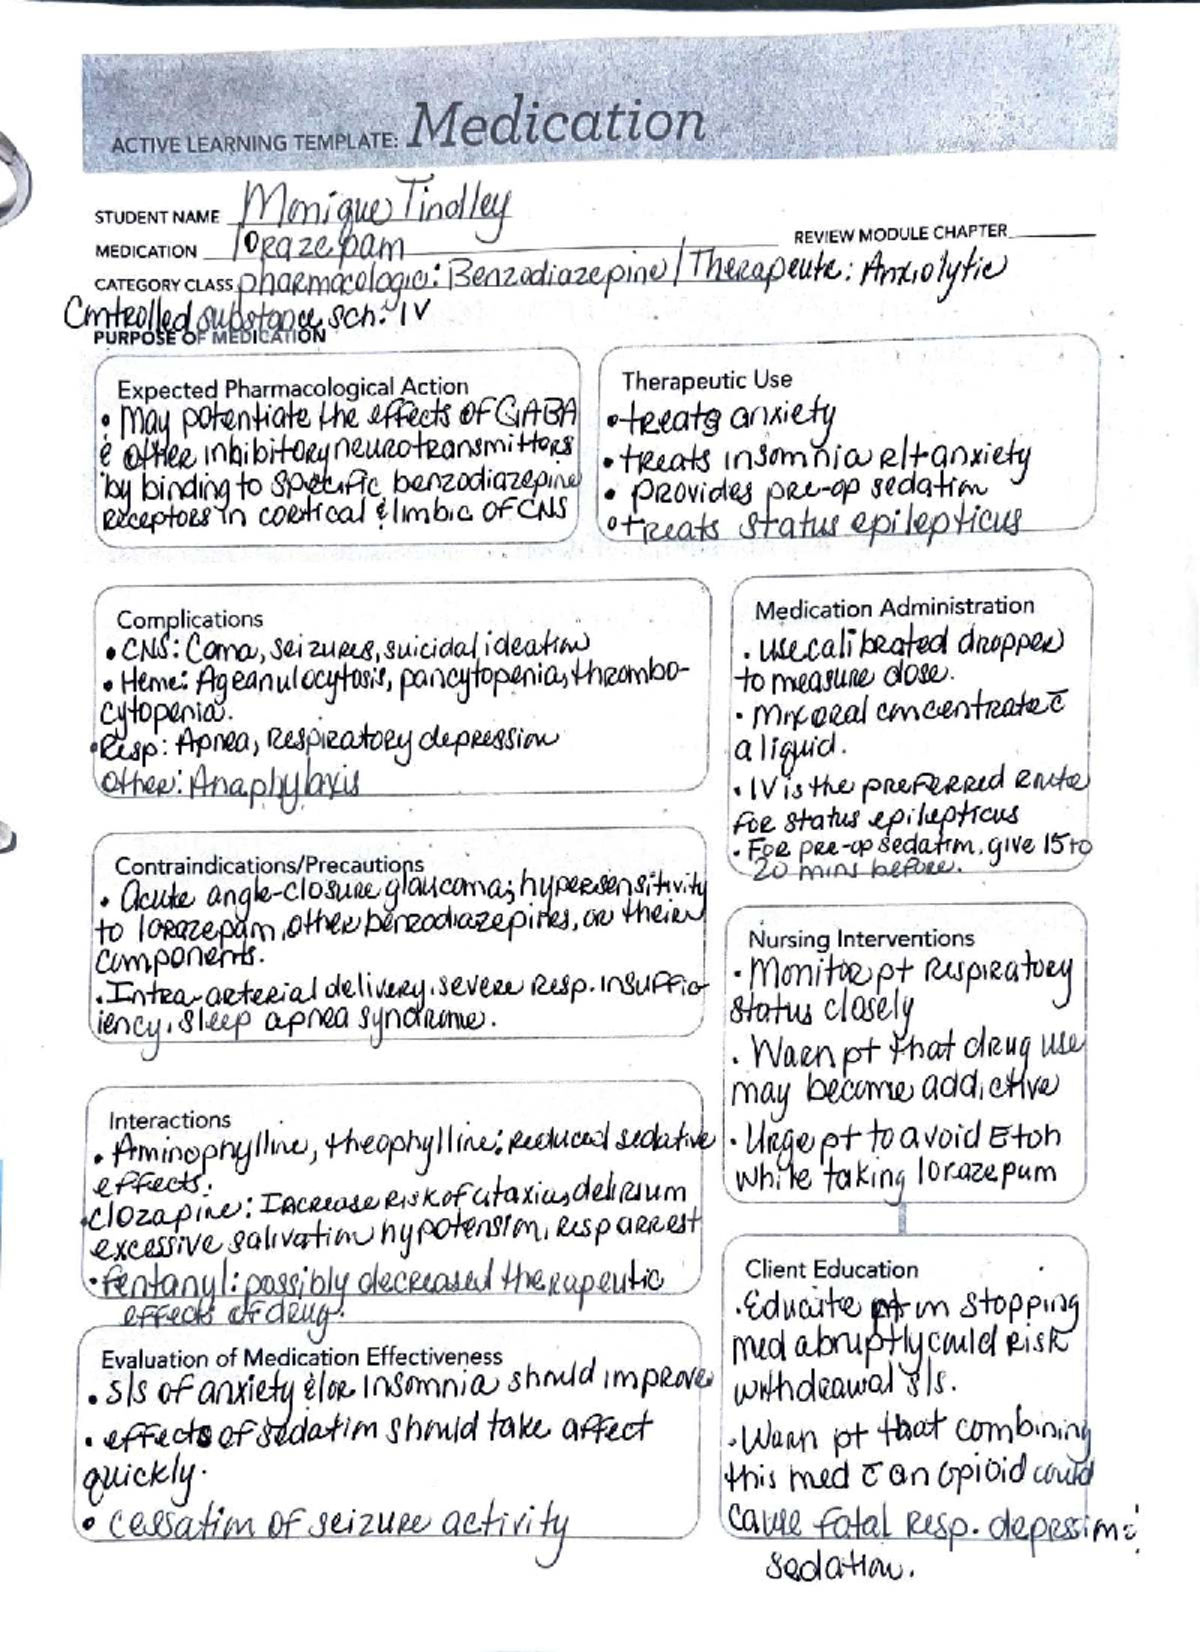 ACTIVE LEARNING TEMPLATE: Medication
STUDENT NAME Monique Tindley
MEDICATION lorazepam
REVIEW MODULE CHAPTER
CATEGORY CLASS pharmacologic: Benzodiazepine / Therapeutic: Anxiolytic
Controlled substance sch. IV
PURPOSE OF MEDICATION
Expected Pharmacological Action
• May potentiate the effects of GABA
& other inhibitory neurotransmitters
by binding to specific benzodiazepine
receptors in cortical & limbic of CNS
Therapeutic Use
• treats anxiety
• treats insomnia r/t anxiety
• provides pre-op sedation
• treats status epilepticus
Complications
• CNS: Coma, seizures, suicidal ideation
• Heme: Agranulocytosis, pancytopenia, thrombo-
cytopenia.
• Resp: Apnea, respiratory depression
Other: Anaphylaxis
Medication Administration
• use calibrated dropper
to measure dose.
• Mix oral concentrate c̄
a liquid.
• IV is the preferred route
for status epilepticus
• For pre-op sedation, give 15 to
20 mins before.
Contraindications/Precautions
• Acute angle-closure glaucoma; hypersensitivity
to lorazepam, other benzodiazepines, or their
components.
• Intra-arterial delivery, severe resp. insuffic-
iency, sleep apnea syndrome.
Nursing Interventions
• Monitor pt respiratory
status closely
• Warn pt that drug use
may become addictive
• Urge pt to avoid Etoh
while taking lorazepam
Interactions
• Aminophylline, theophylline: reduced sedative
effects.
• clozapine: Increase risk of ataxia, delirium
excessive salivation hypotension, resp arrest
• fentanyl: possibly decreased therapeutic
effects of drug.
Client Education
• Educate pt on stopping
med abruptly could risk
withdrawal s/s.
• Warn pt that combining
this med c̄ an opioid could
cause fatal resp. depression &
sedation.
Evaluation of Medication Effectiveness
• s/s of anxiety &/or insomnia should improve
• effects of sedation should take affect
quickly.
• cessation of seizure activity